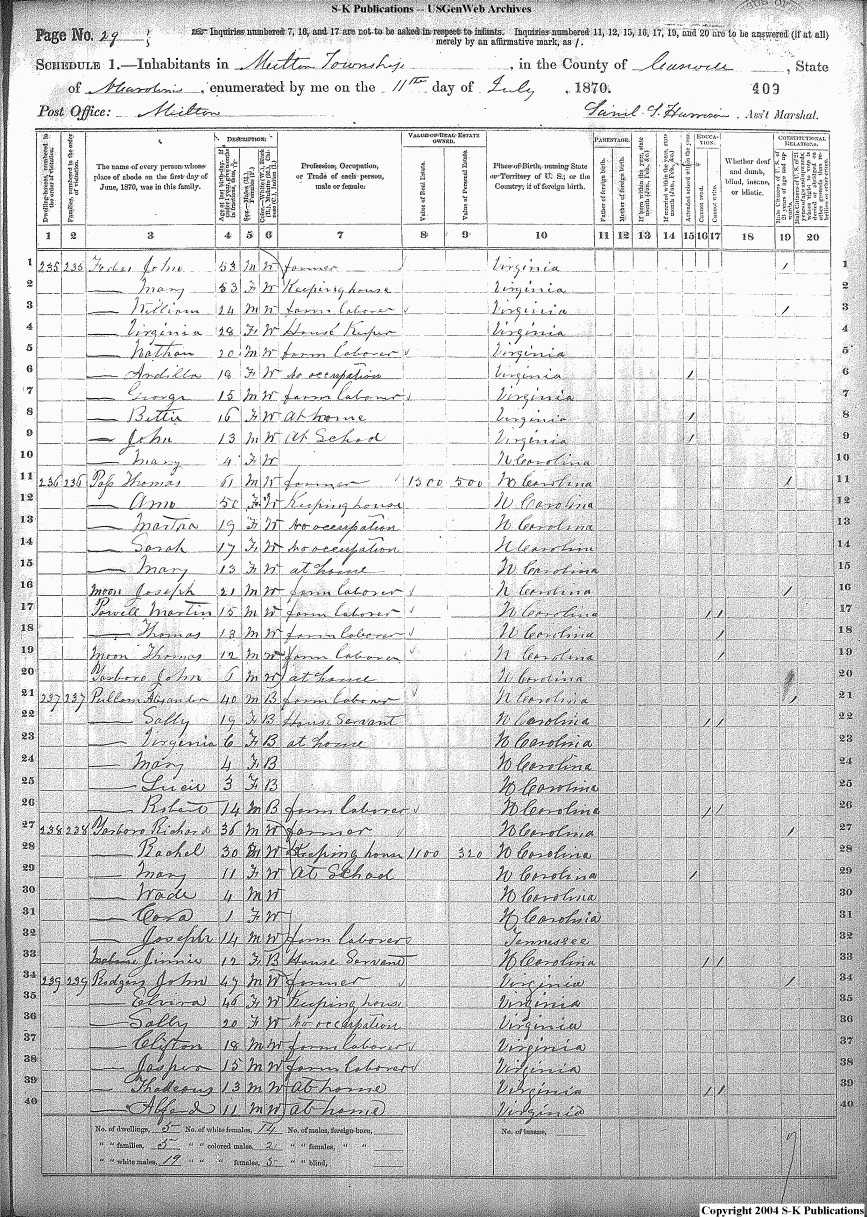 S-K Publications -- USGenWeb Archives
Page No. 29
Inquiries numbered 7, 16, and 17 are not to be asked in respect to infants. Inquiries numbered 11, 12, 15, 16, 17, 19, and 20 are to be answered (if at all)
merely by an affirmative mark, as /.
SCHEDULE 1.—Inhabitants in Milton Township, in the County of Caswell, State
of N Carolina, enumerated by me on the 11th day of July, 1870. 409
Post Office: Milton Saml S. Harrison, Ass't Marshal.
DESCRIPTION. VALUE OF REAL ESTATE OWNED. PARENTAGE. EDUCATION. CONSTITUTIONAL RELATIONS.
Dwelling-houses, numbered in the order of visitation.
Families, numbered in the order of visitation.
The name of every person whose place of abode on the first day of June, 1870, was in this family.
Profession, Occupation, or Trade of each person, male or female.
Value of Real Estate.
Value of Personal Estate.
Place of Birth, naming State or Territory of U. S.; or the Country, if of foreign birth.
Father of foreign birth.
Mother of foreign birth.
Attended school within the year.
Cannot read.
Cannot write.
Whether deaf and dumb, blind, insane, or idiotic.
1 2 3 4 5 6 7 8 9 10 11 12 13 14 15 16 17 18 19 20
1 235 235 John 53 M W farmer Virginia / 1
2 — Mary 53 F W Keeping house Virginia 2
3 — William 24 M W farm laborer Virginia / 3
4 — Virginia 28 F W House Keeper Virginia 4
5 — Nathan 20 M W farm laborer Virginia 5
6 — Ardilla 18 F W No occupation Virginia / 6
7 — George 15 M W farm laborer Virginia 7
8 — Bettie 16 F W At home Virginia / 8
9 — John 13 M W At School Virginia / 9
10 — Mary 4 F W N Carolina 10
11 236 236 Pass Thomas 61 M W farmer 1300 500 N Carolina / 11
12 — Ann 50 F W Keeping house N Carolina 12
13 — Martha 19 F W No occupation N Carolina 13
14 — Sarah 17 F W No occupation N Carolina 14
15 — Mary 13 F W at home N Carolina 15
16 Moon Joseph 21 M W farm laborer N Carolina / 16
17 Powell Martin 15 M W farm laborer N Carolina / / 17
18 — Thomas 13 M W farm laborer N Carolina / 18
19 Moon Thomas 12 M W farm laborer N Carolina / 19
20 Yarboro John 6 M W at home N Carolina 20
21 237 237 Pullam Alexander 40 M B farm laborer N Carolina / 21
22 — Sally 19 F B House Servant N Carolina / / 22
23 — Virginia 6 F B at home N Carolina 23
24 — Mary 4 F B N Carolina 24
25 — Lucie 3 F B N Carolina 25
26 — Robert 14 M B farm laborer N Carolina / / 26
27 238 238 Yarboro Richard 36 M W farmer N Carolina / 27
28 — Rachel 30 W Keeping house 1100 320 N Carolina 28
29 — Mary 11 F W At School N Carolina / 29
30 — Wade 4 M W N Carolina 30
31 — Cora 1 F W N Carolina 31
32 — Joseph 14 M W farm laborer Tennessee 32
33 Jinnie 12 F B House Servant N Carolina / / 33
34 239 239 Rodgers John 47 M W farmer Virginia / 34
35 — Elvira 46 F W Keeping house Virginia 35
36 — Sally 20 F W No occupation Virginia 36
37 — Clifton 18 M W farm laborer Virginia 37
38 — Jasper 15 M W farm laborer Virginia 38
39 — Thadeous 13 M W At home Virginia / / 39
40 — Alfred 11 M W At home Virginia 40
No. of dwellings, 5 No. of white females, 14 No. of males, foreign-born, No. of insane,
" " families, 5 " " colored males, 2 " " females, " "
" " white males, 19 " " " females, 5 " " blind,
Copyright 2004 S-K Publications